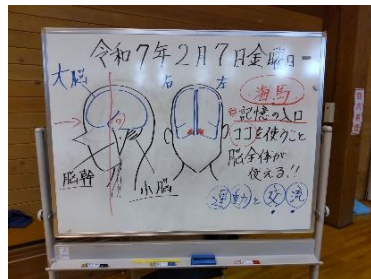 令和7年2月7日金曜日
大脳
右 左
海馬
記憶の入口
ココを使うこと
脳全体が
使える!!
脳幹
小脳
運動と交流